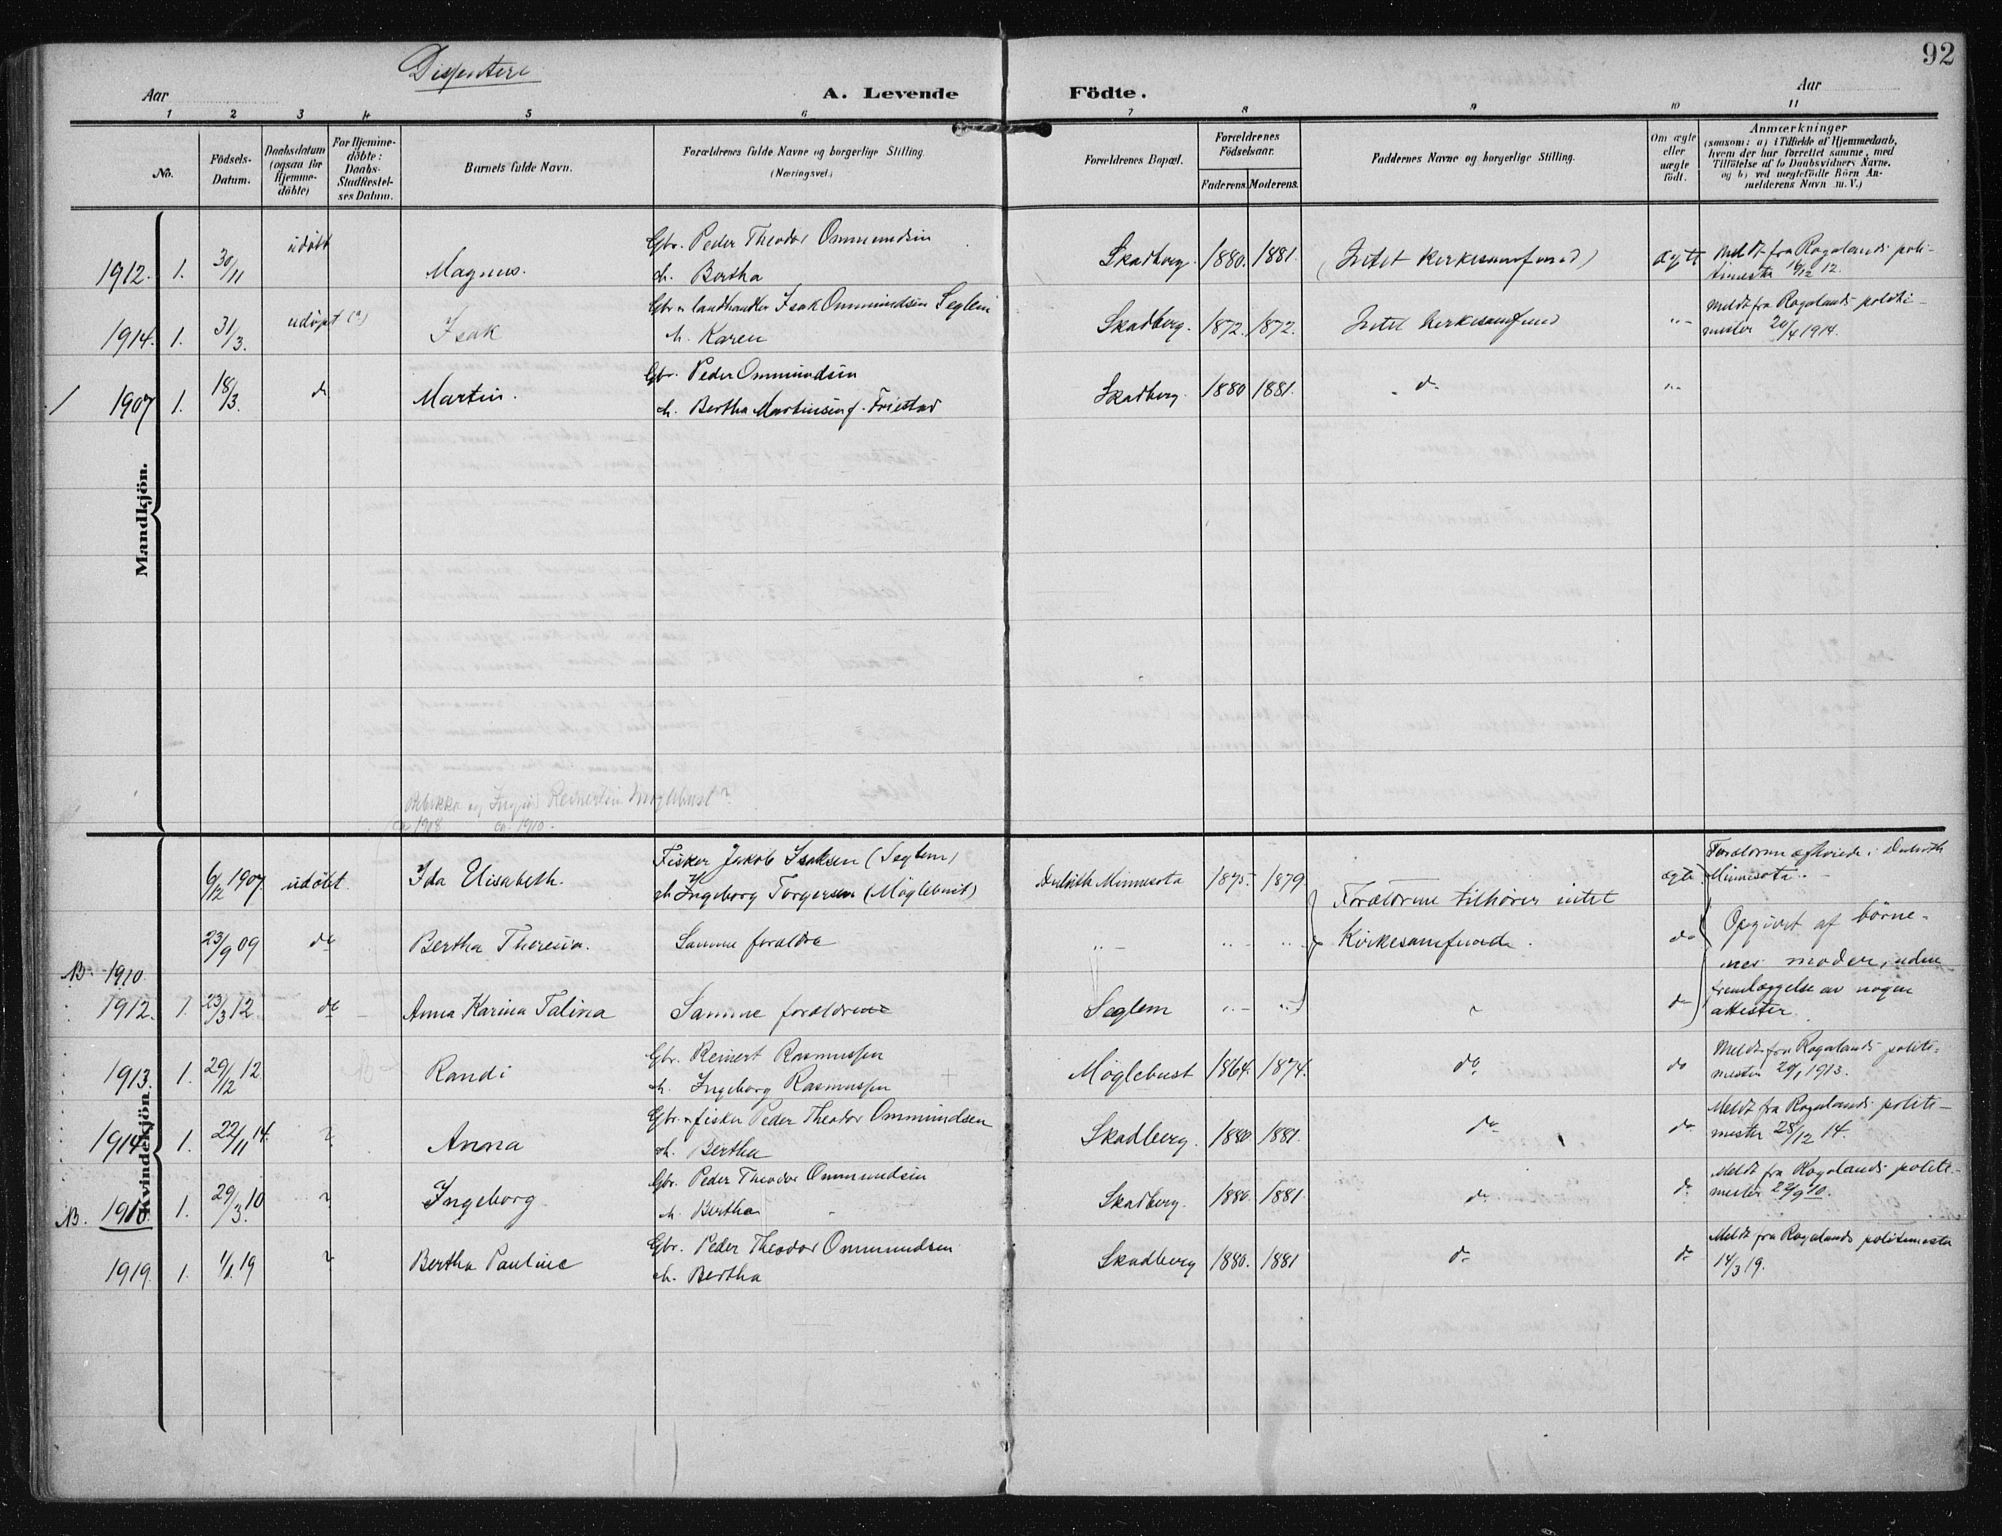 92
Dissentere
Aar
A. Levende Födte.
Aar
1 2 3 4 5 6 7 8 9 10 11
No.
Födsels-
Datum.
Daabsdatum
(ogsaa for
Hjemme-
döbte)
For Hjemme-
döbte:
Daabs-
Stadfæstel-
ses Datum.
Barnets fulde Navn.
Forældrenes fulde Navne og borgerlige Stilling
(Næringsvei.)
Forældrenes Bopæl.
Forældrenes
Födselsaar.
Faderens. Moderens.
Faddernes Navne og borgerlige Stilling.
Om ægte
eller
uægte
födt.
Anmærkninger
(saasom: a) i Tilfælde af Hjemmedaab,
hvem der har forrettet samme, med
Tilföielse af to Daabsvidners Navne,
og b) ved uægtefödte Börn An-
melderens Navn m. V.)
Mandkjön.
1912. 1. 30/11 udöbt Magnus. Gbr. Peder Theodor Ommundsen
h. Bertha
Skadberg. 1880. 1881. (Intet kirkesamfund) ægte Meldt fra Rogalands poli-
timester 16/12 12.
1914. 1. 31/3. udöpt (?) Isak Gbr. & landhandler Isak Ommundsen Seglem
h. Karen
Skadberg. 1872. 1872. Intet kirkesamfund "- Meldt fra Rogalands politi-
mester 20/4 1914.
/ 1907 1. 18/3. do Martin. Gbr. Peder Ommundsen
h. Bertha Martinsen f. Friestad
Skadberg. 1880 1881. do "-
Rebekka og Ingrid Reinertsen Möglebust?
ca 1908 ca. 1910.
Kvindekjön.
6/12 1907. udöbt. Ida Elisabeth. Fisker Jakob Isaksen (Seglem)
h. Ingeborg Torgersen (Möglebust)
Duluth Minnesota 1875 1879 Forældrene tilhörer intet
Kirkesamfund.
ægte Forældrene efterviede i Duluth
Minnesota.
23/9 09 do Bertha Theresia. Samme forældre "- "- "- do Opgivet af börne-
nes moder, uden
fremlæggelse av nogen
attester.
NB. 1910.
1912. 1. 23/3 12 do Anna Karina Talina Samme forældre Seglem "- "- do
1913. 1. 29/12 12 Randi Gbr. Reinert Rasmussen
h. Ingeborg Rasmussen
Möglebust 1864. 1874. do do Meldt fra Rogalands politi-
mester 20/1 1913.
1914 1. 22/11 14. Anna Gbr. & fisker Peder Theodor Ommundsen
h. Bertha
Skadberg. 1880 1881. do do Meldt fra Rogalands politi-
mester 28/12 14.
NB. 1910. 1. 29/3. 10 Ingeborg Gbr. Peder Theodor Ommundsen
h. Bertha
Skadberg. 1880. 1881 do do Meldt fra Rogalands politi-
mester 22/9 10.
1919. 1. 1/1. 19 Bertha Pauline Gbr. Peder Theodor Ommundsen
h. Bertha
Skadberg 1880. 1881 do do Meldt fra Rogalands politimester
14/3 19.